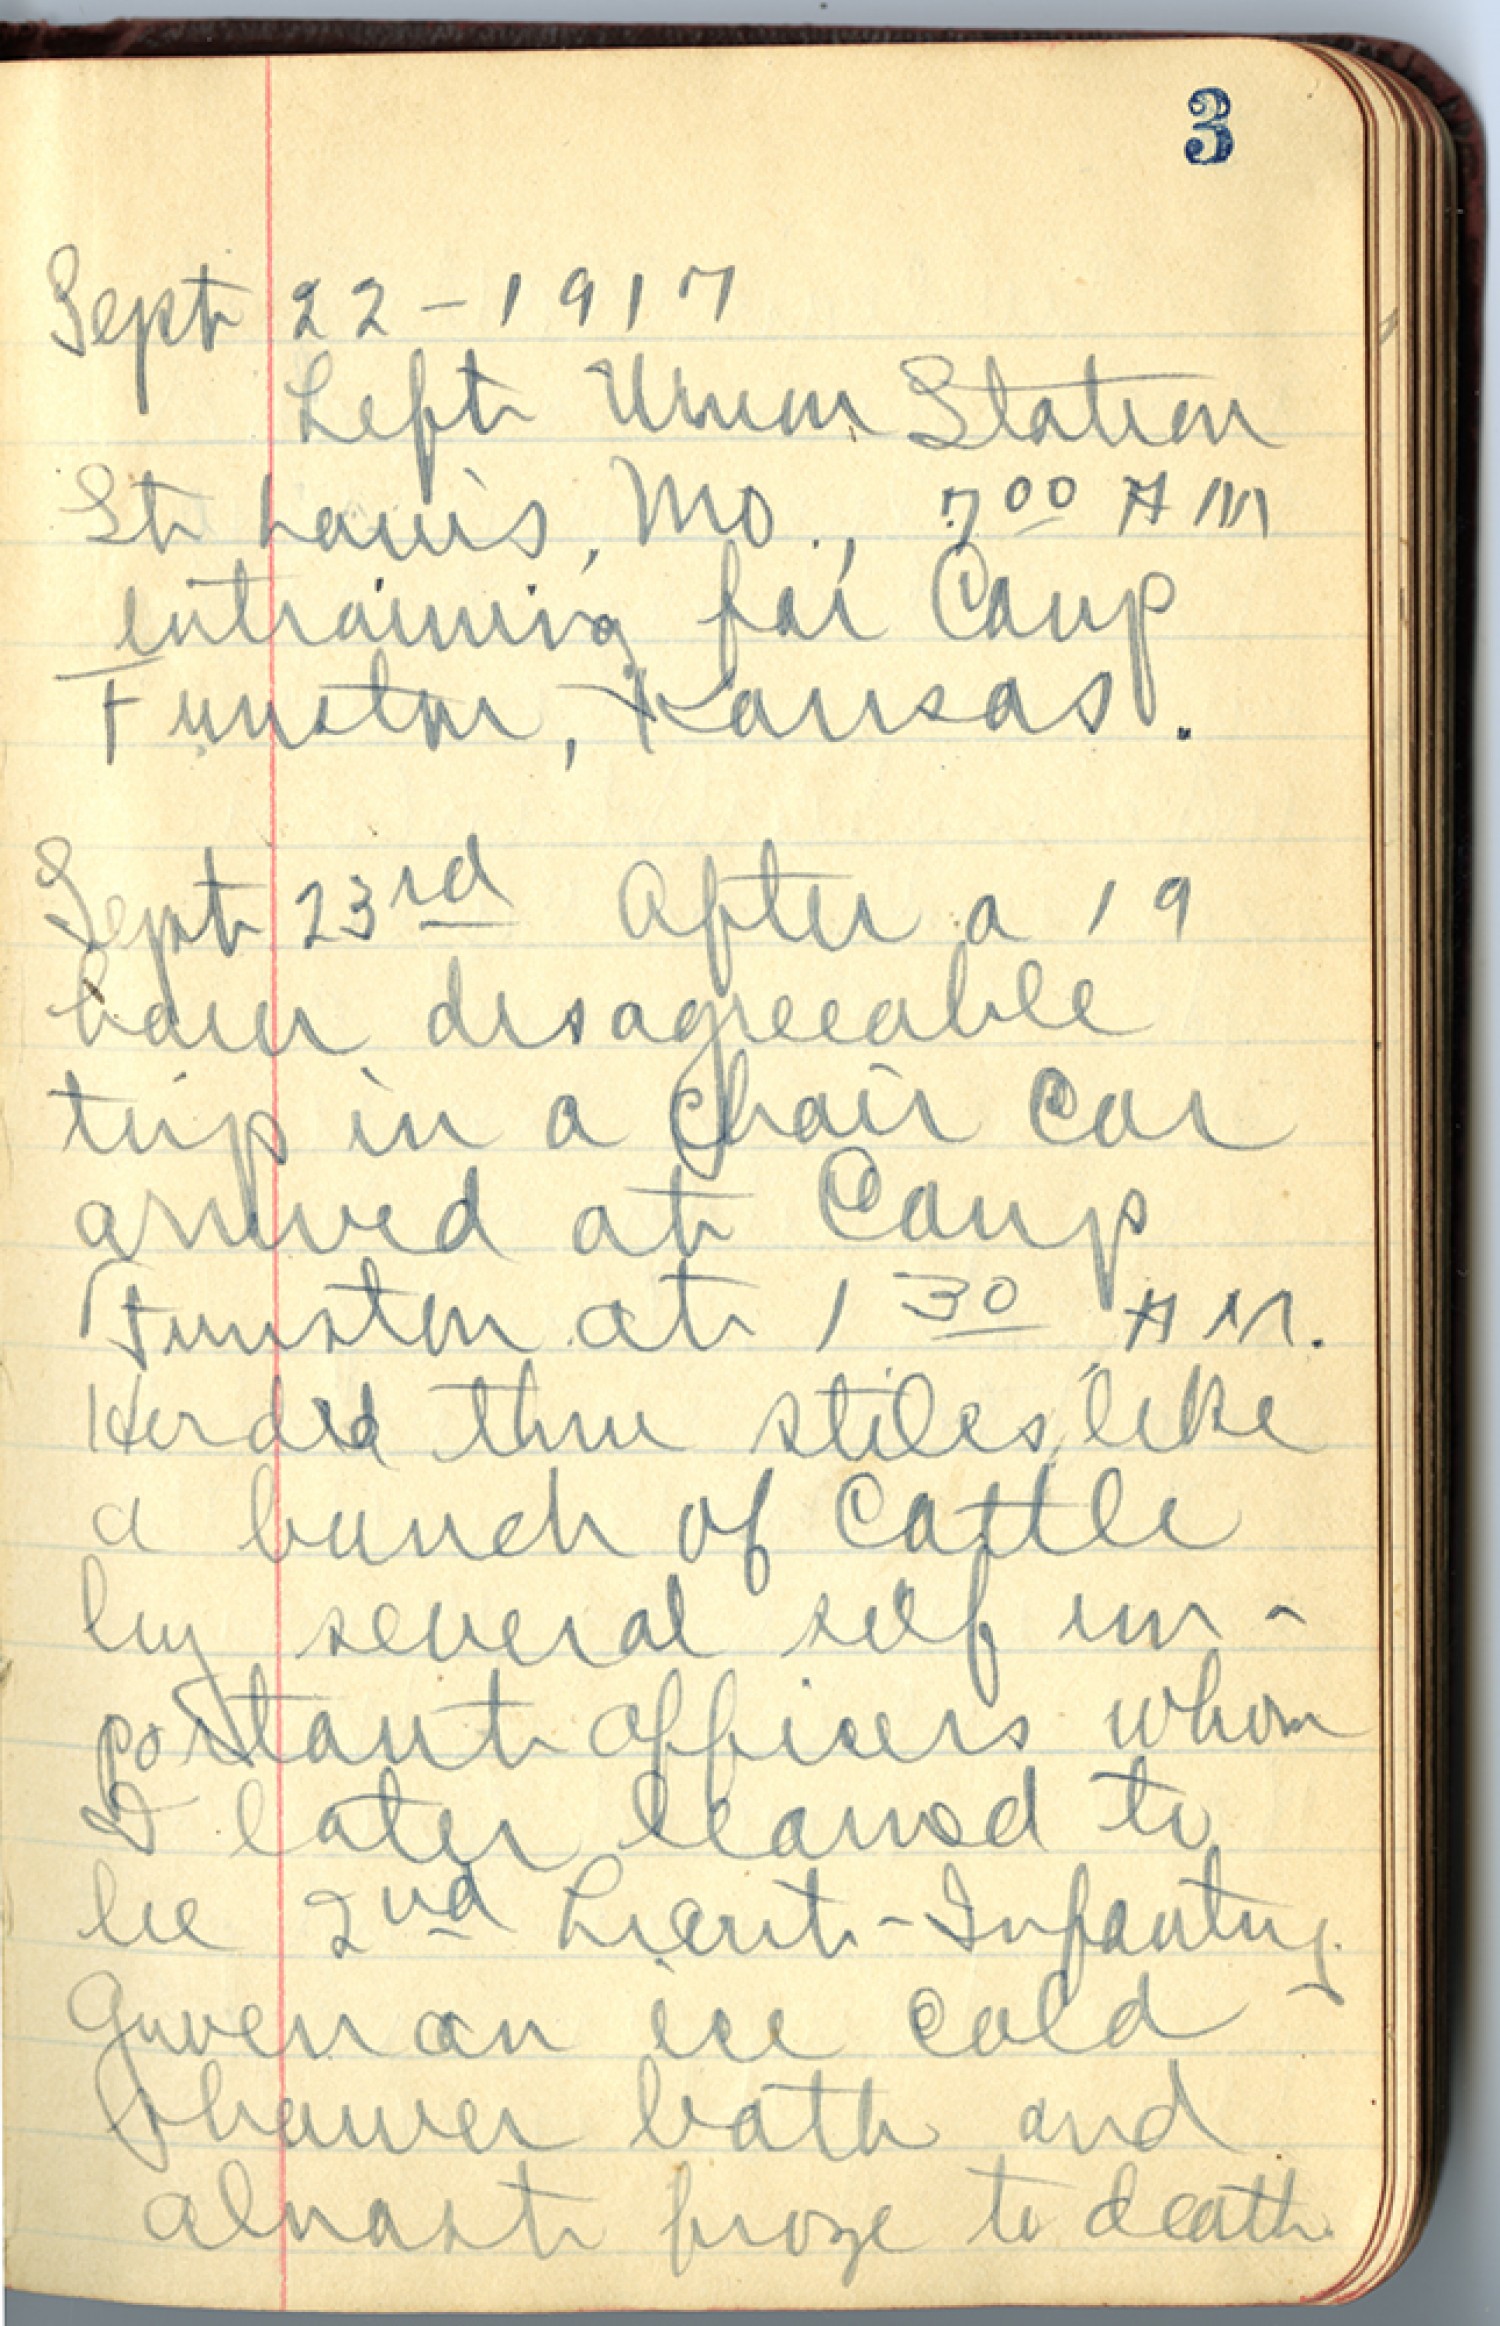 3
Sept 22 - 1917
Left Union Station
St Louis, Mo., 7⁰⁰ A M
entraining for Camp
Funston, Kansas.
Sept 23rd After a 19
hour disagreeable
trip in a chair car
arrived at Camp
Funston at 1 30 A M.
Herded thru stiles, like
a bunch of cattle
by several self im-
portant officers whom
I later learned to
be 2nd Lieut - Infantry.
Given an ice cold
shower bath and
almost froze to death.